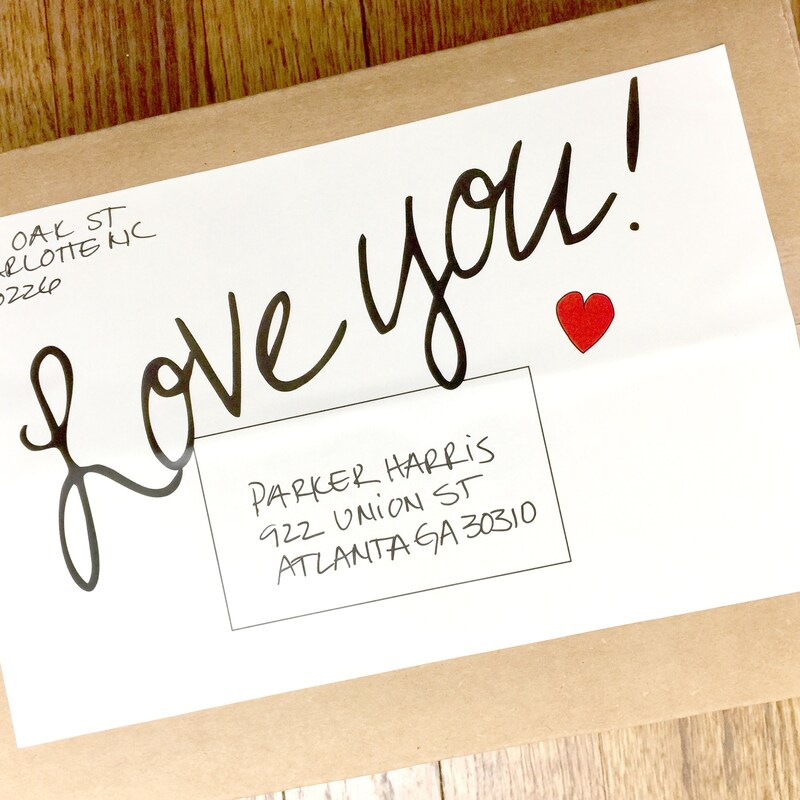 OAK ST
ARLOTTE NC
0226
Love you!
PARKER HARRIS
922 UNION ST
ATLANTA GA 30310